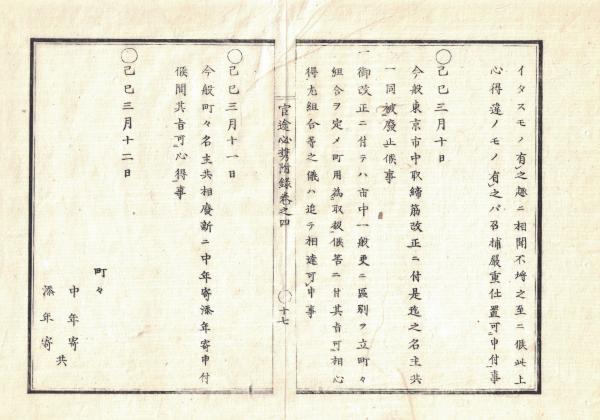 イタスモノ有之趣ニ相聞不埒之至ニ候此上
心得違ノモノ有之ハ召捕嚴重仕置可申付事
○己巳三月十日
今般東京市中取締筋改正ニ付是迄之名主共
一同被廢止候事
一御改正ニ付テハ市中一般更ニ區別ヲ立町々
組合ヲ定メ町用爲取扱候筈ニ付其旨可相心
得尤組合等之儀ハ追テ相達可申事
官途必携附錄卷之四
○十七
○己巳三月十一日
今般町々名主共相廢新ニ中年寄添年寄申付
候間其旨可心得事
○己巳三月十二日
町々
中年寄
添年寄共